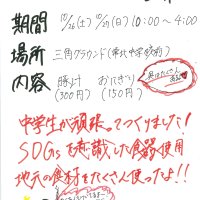 期間 10/26(土) 10/27(日) 10:00〜4:00
場所 三角グラウンド(東北中学校前)
内容 豚汁 おにぎり
(300円) (150円)
中学生が頑張ってつくりました!
SDGsを意識した食器使用
地元の食材をたくさん使ったよ!!